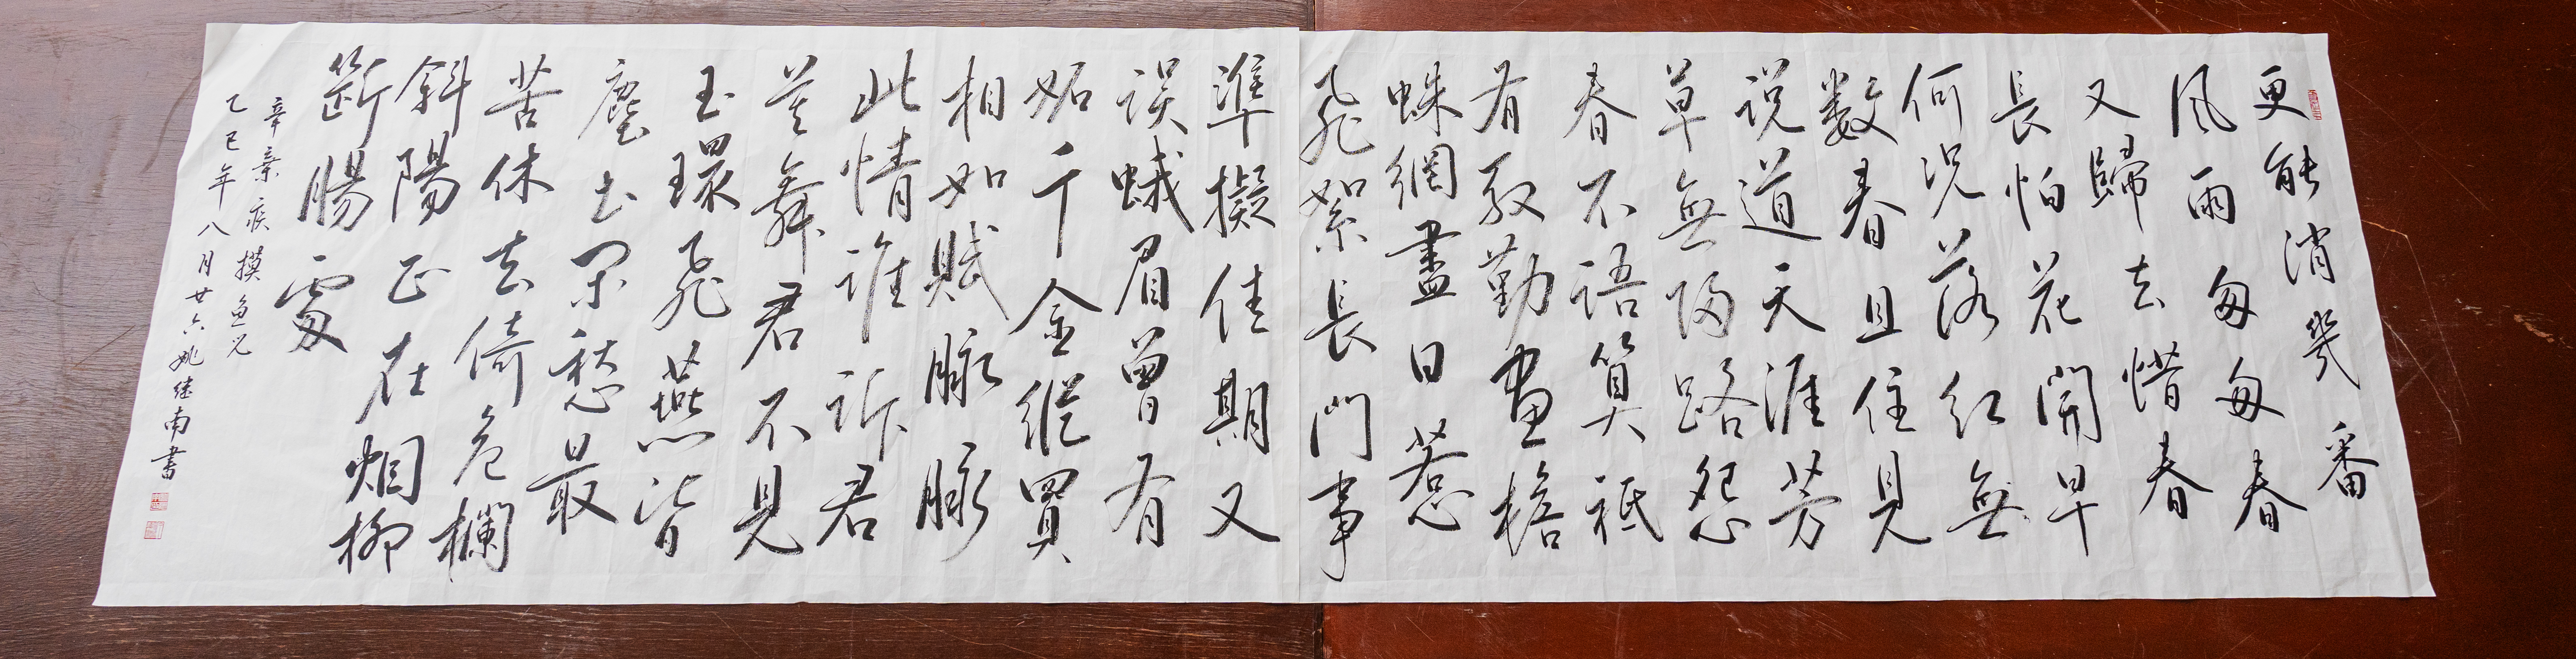 更能消幾番
風雨匆匆春
又歸去惜春
長怕花開早
何況落紅無
數春且住見
说道天涯芳
草無歸路怨
春不语算祗
有殷勤畫檐
蛛網盡日惹
飛絮長門事
準擬佳期又
误蛾眉曾有
妬千金縱買
相如賦脈脈
此情谁诉君
莫舞君不見
玉環飛燕皆
塵土閑愁最
苦休去倚危欄
斜陽正在烟柳
斷腸處
辛棄疾摸魚兒
乙巳年八月廿六姚继南書